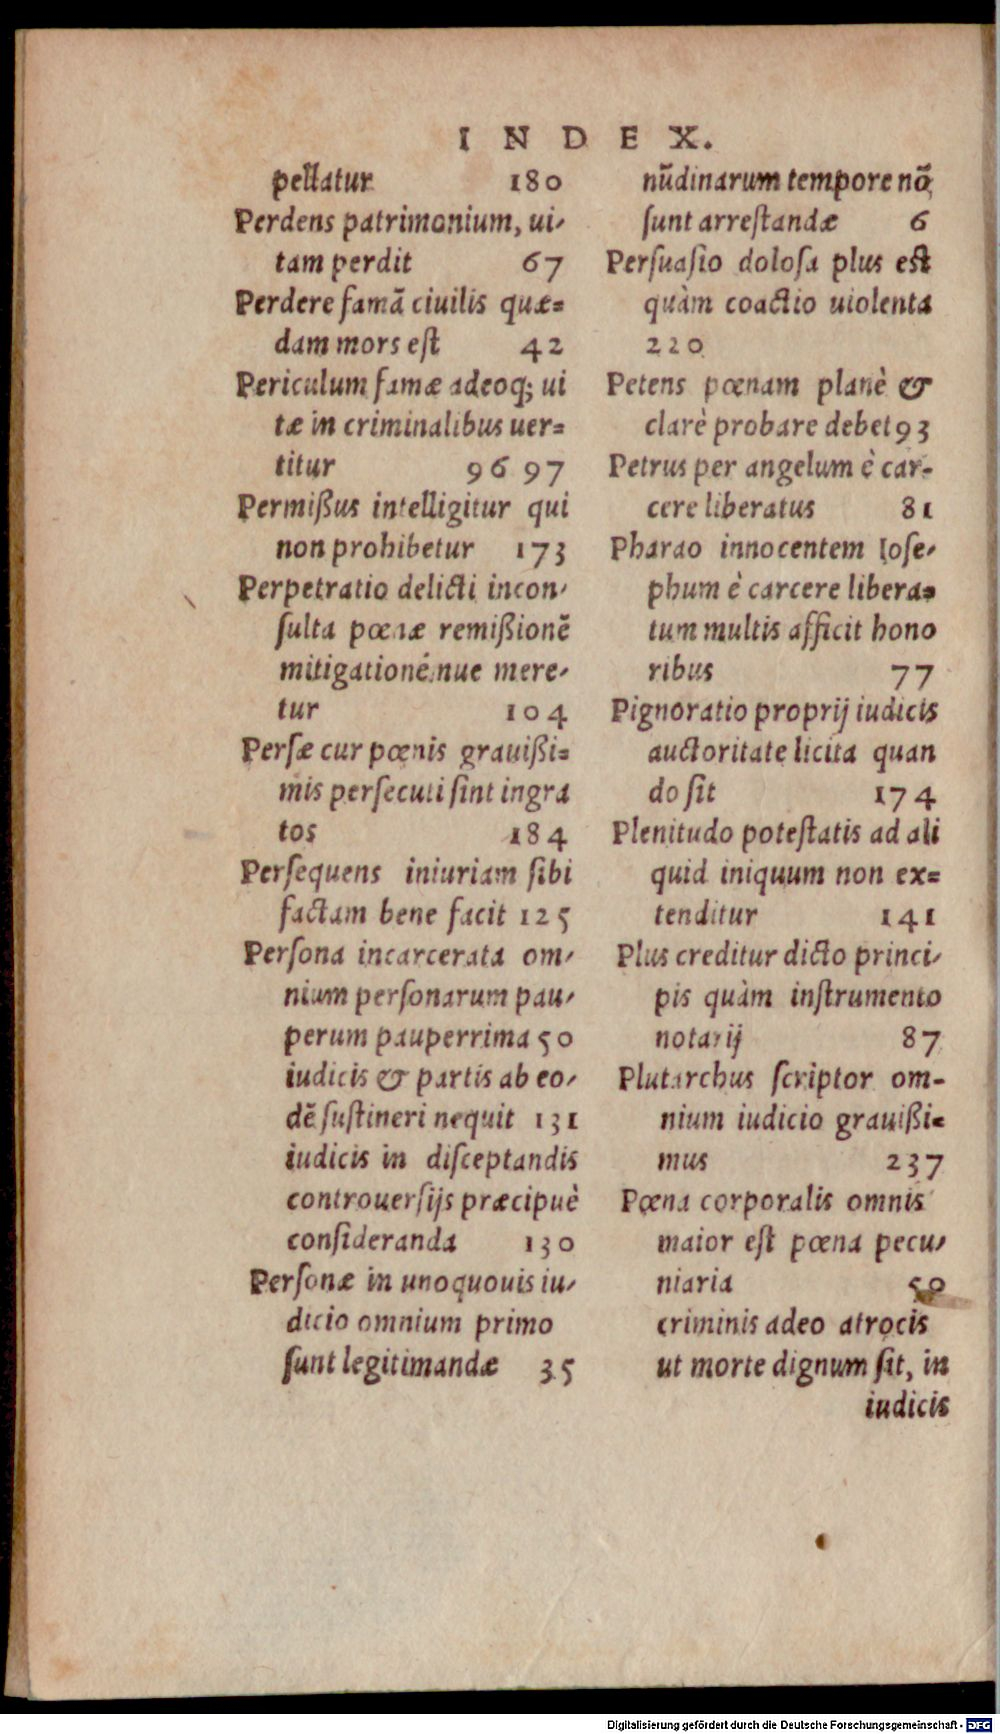 INDEX.
pellatur 180
Perdens patrimonium, ui-
tam perdit 67
Perdere famã ciuilis quæ=
dam mors est 42
Periculum famæ adeoq; ui
tæ in criminalibus uer=
titur 96 97
Permißus intelligitur qui
non prohibetur 173
Perpetratio delicti incon-
sulta pœnæ remißionẽ
mitigationẽ nue mere-
tur 104
Persæ cur pœnis grauißi=
mis persecuti sint ingra
tos 184
Persequens iniuriam sibi
factam bene facit 125
Persona incarcerata om-
nium personarum pau-
perum pauperrima 50
iudicis & partis ab eo-
dẽ sustineri nequit 131
iudicis in disceptandis
controuersijs præcipuè
consideranda 130
Personæ in unoquouis iu-
dicio omnium primo
sunt legitimandæ 35
nũdinarum tempore nõ
sunt arrestandæ 6
Persuasio dolosa plus est
quàm coactio uiolenta
220
Petens pœnam planè &
clarè probare debet 93
Petrus per angelum è car-
cere liberatus 81
Pharao innocentem Iose-
phum è carcere libera=
tum multis afficit hono
ribus 77
Pignoratio proprij iudicis
auctoritate licita quan
do sit 174
Plenitudo potestatis ad ali
quid iniquum non ex=
tenditur 141
Plus creditur dicto princi-
pis quàm instrumento
notarij 87
Plutarchus scriptor om-
nium iudicio grauißi=
mus 237
Pœna corporalis omnis
maior est pœna pecu-
niaria 50
criminis adeo atrocis
ut morte dignum sit, in
iudicis
Digitalisierung gefördert durch die Deutsche Forschungsgemeinschaft - DFG